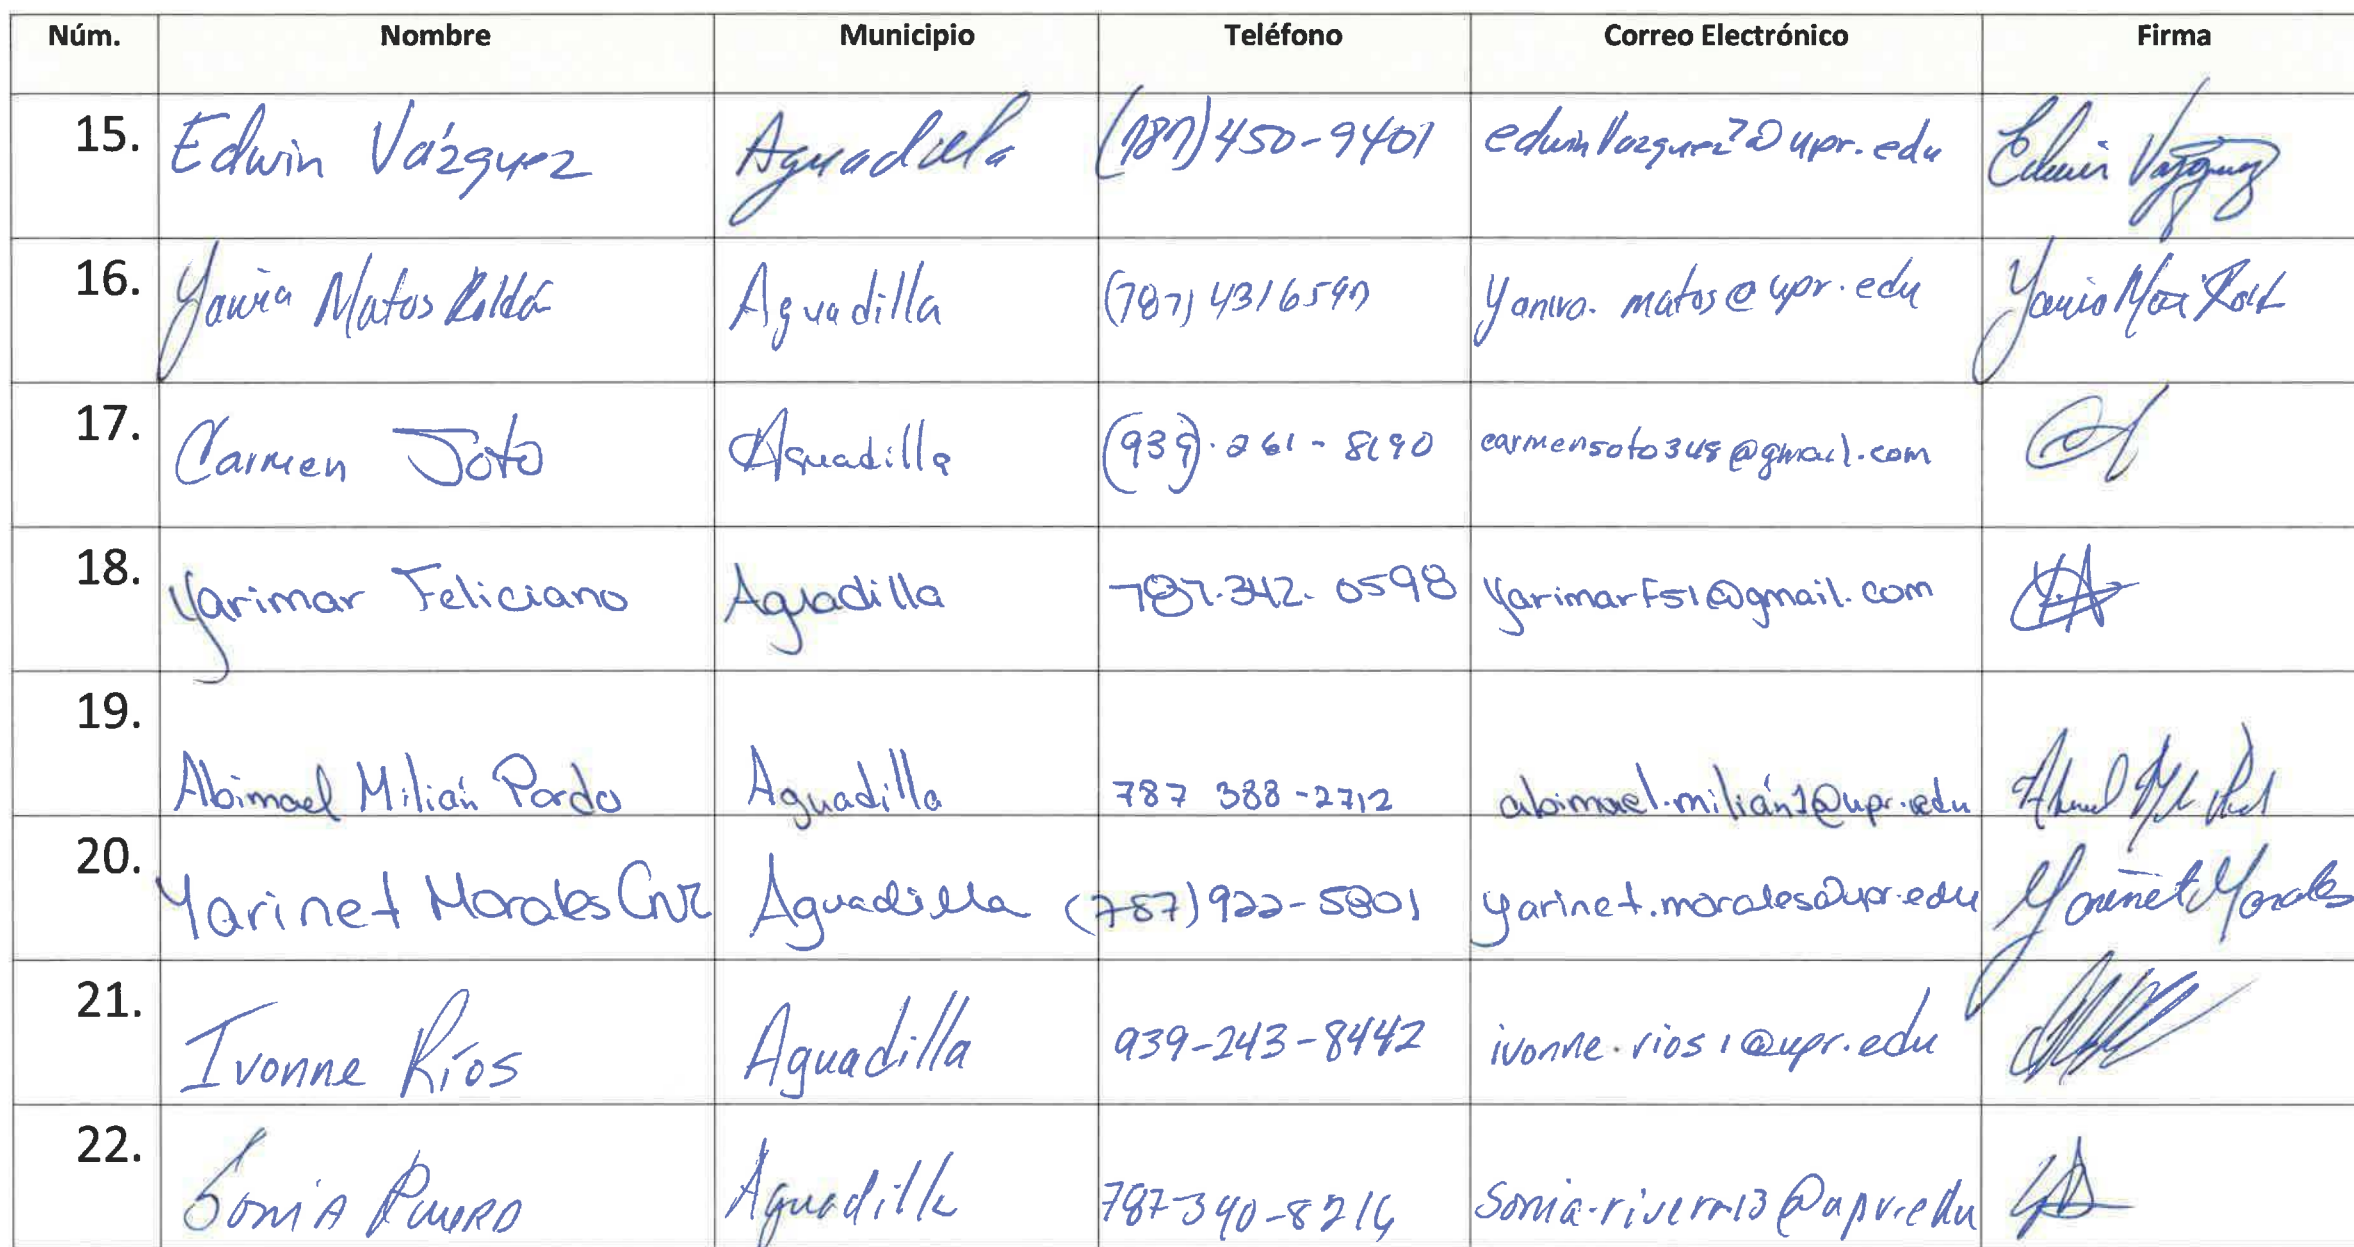 Núm. Nombre Municipio Teléfono Correo Electrónico Firma
15. Edwin Vázquez Aguadilla (787) 450-9401 edwinVazquez7@upr.edu Edwin Vázquez
16. Matos Roldá Aguadilla (787) 4316597 matos@upr.edu
17. Carmen Soto Aguadilla (939). 261-8190 carmensoto348@gmail.com
18. Yarimar Feliciano Aguadilla 787.342.0598 YarimarF51@gmail.com
19. Abimael Milián Pardo Aguadilla 787 388-2712 abimael.milián1@upr.edu
20. Yarinet Morales Cruz Aguadilla (787) 922-5801 yarinet.morales@upr.edu Yarinet Morales
21. Ivonne Ríos Aguadilla 939-243-8442 ivonne.rios1@upr.edu
22. Sonia Aguadilla 787-340-8216 Sonia.rivera13@upr.edu